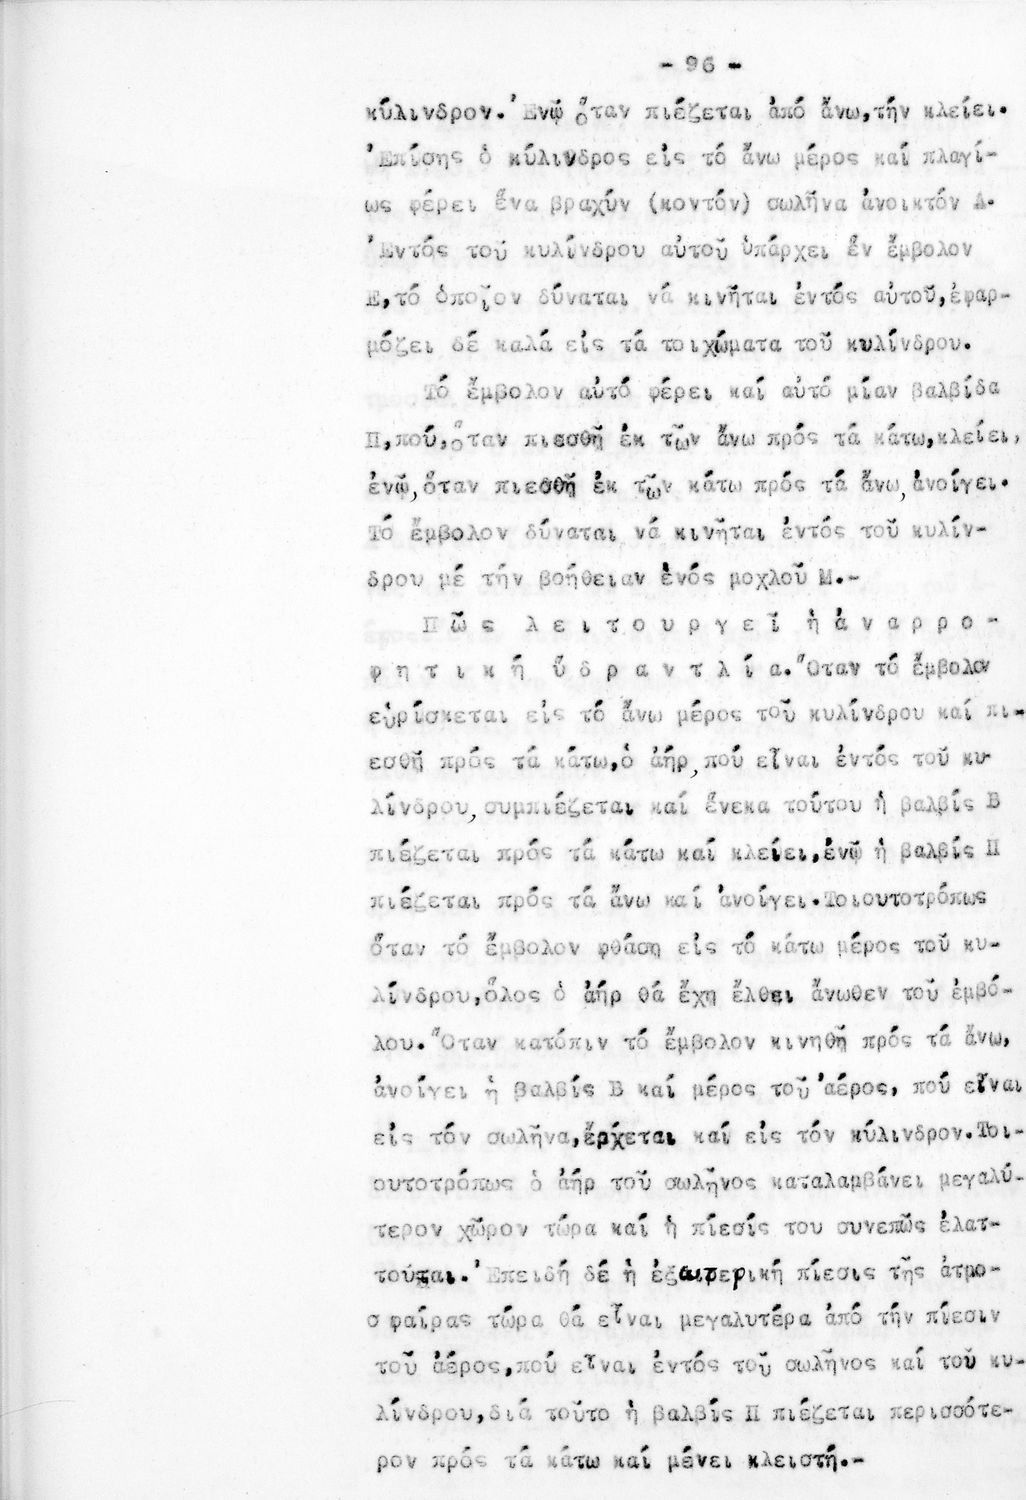 - 96 -
κύλινδρον. Ἐνῷ ὅταν πιέζεται ἀπό ἄνω, τήν κλείει.
Ἐπίσης ὁ κύλινδρος εἰς τό ἄνω μέρος καί πλαγί-
ως φέρει ἕνα βραχύν (κοντόν) σωλῆνα ἀνοικτόν Δ.
Ἐντός τοῦ κυλίνδρου αὐτοῦ ὑπάρχει ἕν ἔμβολον
Ε, τό ὁποῖον δύναται νά κινῆται ἐντός αὐτοῦ, ἐφαρ-
μόζει δέ καλά εἰς τά τοιχώματα τοῦ κυλίνδρου.
Τό ἔμβολον αὐτό φέρει καί αὐτό μίαν βαλβίδα
Π, πού, ὅταν πιεσθῇ ἐκ τῶν ἄνω πρός τά κάτω, κλείει,
ἐνῷ, ὅταν πιεσθῇ ἐκ τῶν κάτω πρός τά ἄνω, ἀνοίγει.
Τό ἔμβολον δύναται νά κινῆται ἐντός τοῦ κυλίν-
δρου μέ τήν βοήθειαν ἑνός μοχλοῦ Μ.-
Π ῶ ς λ ε ι τ ο υ ρ γ ε ῖ ἡ ἀ ν α ρ ρ ο -
φ η τ ι κ ή ὕ δ ρ α ν τ λ ί α. Ὅταν τό ἔμβολον
εὑρίσκεται εἰς τό ἄνω μέρος τοῦ κυλίνδρου καί πι-
εσθῇ πρός τά κάτω, ὁ ἀήρ, πού εἶναι ἐντός τοῦ κυ-
λίνδρου, συμπιέζεται καί ἕνεκα τούτου ἡ βαλβίς Β
πιέζεται πρός τά κάτω καί κλείει, ἐνῷ ἡ βαλβίς Π
πιέζεται πρός τά ἄνω καί ἀνοίγει. Τοιουτοτρόπως
ὅταν τό ἔμβολον φθάσῃ εἰς τό κάτω μέρος τοῦ κυ-
λίνδρου, ὅλος ὁ ἀήρ θά ἔχη ἔλθει ἄνωθεν τοῦ ἐμβό-
λου. Ὅταν κατόπιν τό ἔμβολον κινηθῇ πρός τά ἄνω,
ἀνοίγει ἡ βαλβίς Β καί μέρος τοῦ ἀέρος, πού εἶναι
εἰς τόν σωλῆνα, ἔρχεται καί εἰς τόν κύλινδρον. Τοι-
ουτοτρόπως ὁ ἀήρ τοῦ σωλῆνος καταλαμβάνει μεγαλύ-
τερον χῶρον τώρα καί ἡ πίεσίς του συνεπῶς ἐλατ-
τοῦται. Ἐπειδή δέ ἡ ἐξωτερική πίεσις τῆς ἀτμο-
σφαίρας τώρα θά εἶναι μεγαλυτέρα ἀπό τήν πίεσιν
τοῦ ἀέρος, πού εἶναι ἐντός τοῦ σωλῆνος καί τοῦ κυ-
λίνδρου, διά τοῦτο ἡ βαλβίς Π πιέζεται περισσότε-
ρον πρός τά κάτω καί μένει κλειστή.-